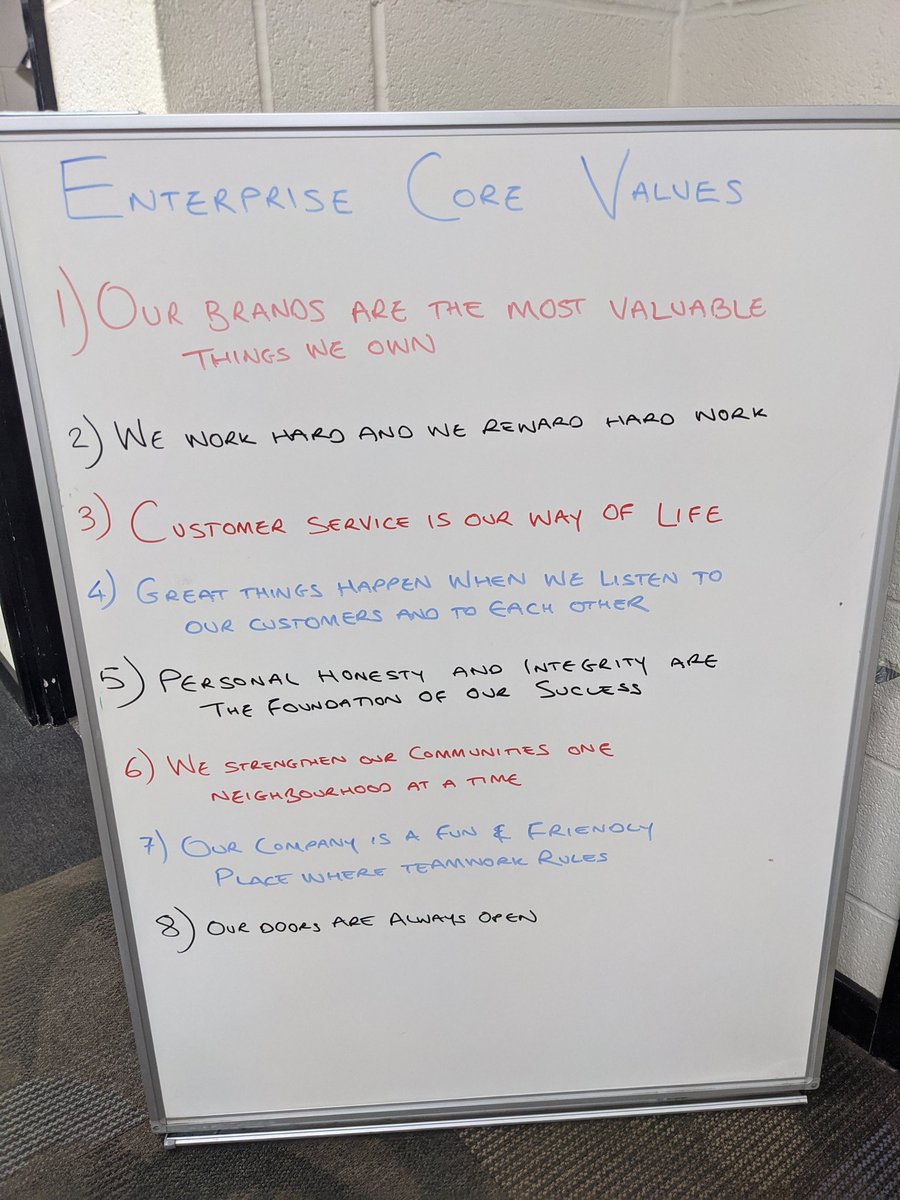 ENTERPRISE CORE VALUES
1) OUR BRANDS ARE THE MOST VALUABLE
THINGS WE OWN
2) WE WORK HARD AND WE REWARD HARD WORK
3) CUSTOMER SERVICE IS OUR WAY OF LIFE
4) GREAT THINGS HAPPEN WHEN WE LISTEN TO
OUR CUSTOMERS AND TO EACH OTHER
5) PERSONAL HONESTY AND INTEGRITY ARE
THE FOUNDATION OF OUR SUCCESS
6) WE STRENGTHEN OUR COMMUNITIES ONE
NEIGHBOURHOOD AT A TIME
7) OUR COMPANY IS A FUN & FRIENDLY
PLACE WHERE TEAMWORK RULES
8) OUR DOORS ARE ALWAYS OPEN